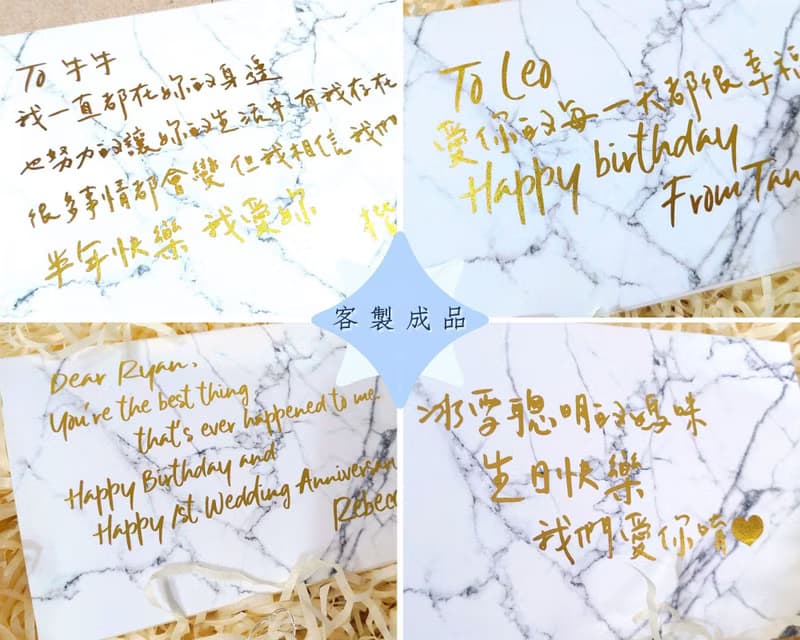 To 牛牛
我一直都在妳的身邊
也努力的讓妳的生活中有我存在
很多事情都會變 但我相信我們
半年快樂 我愛妳
To Leo
愛你的每一天都很幸福
Happy birthday
From Tan
客製成品
Dear Ryan,
You're the best thing
that's ever happened to me.
Happy Birthday and
Happy 1st Wedding Anniversar
Rebec
冰雪聰明的媽咪
生日快樂
我們愛你唷♥